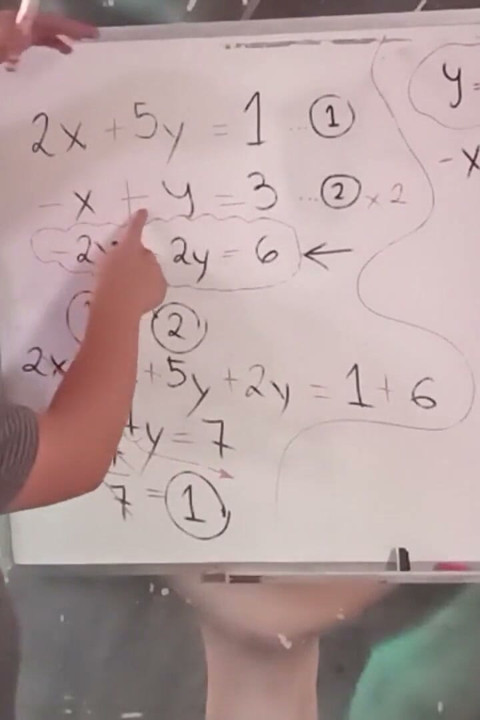 2x + 5y = 1 ... ①
y =
- x + y = 3 ... ② × 2
- x
2y = 6 ←
②
2x + 5y + 2y = 1 + 6
y = 7
7 = 1